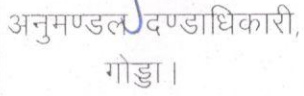 अनुमण्डल दण्डाधिकारी,
गोड्डा।